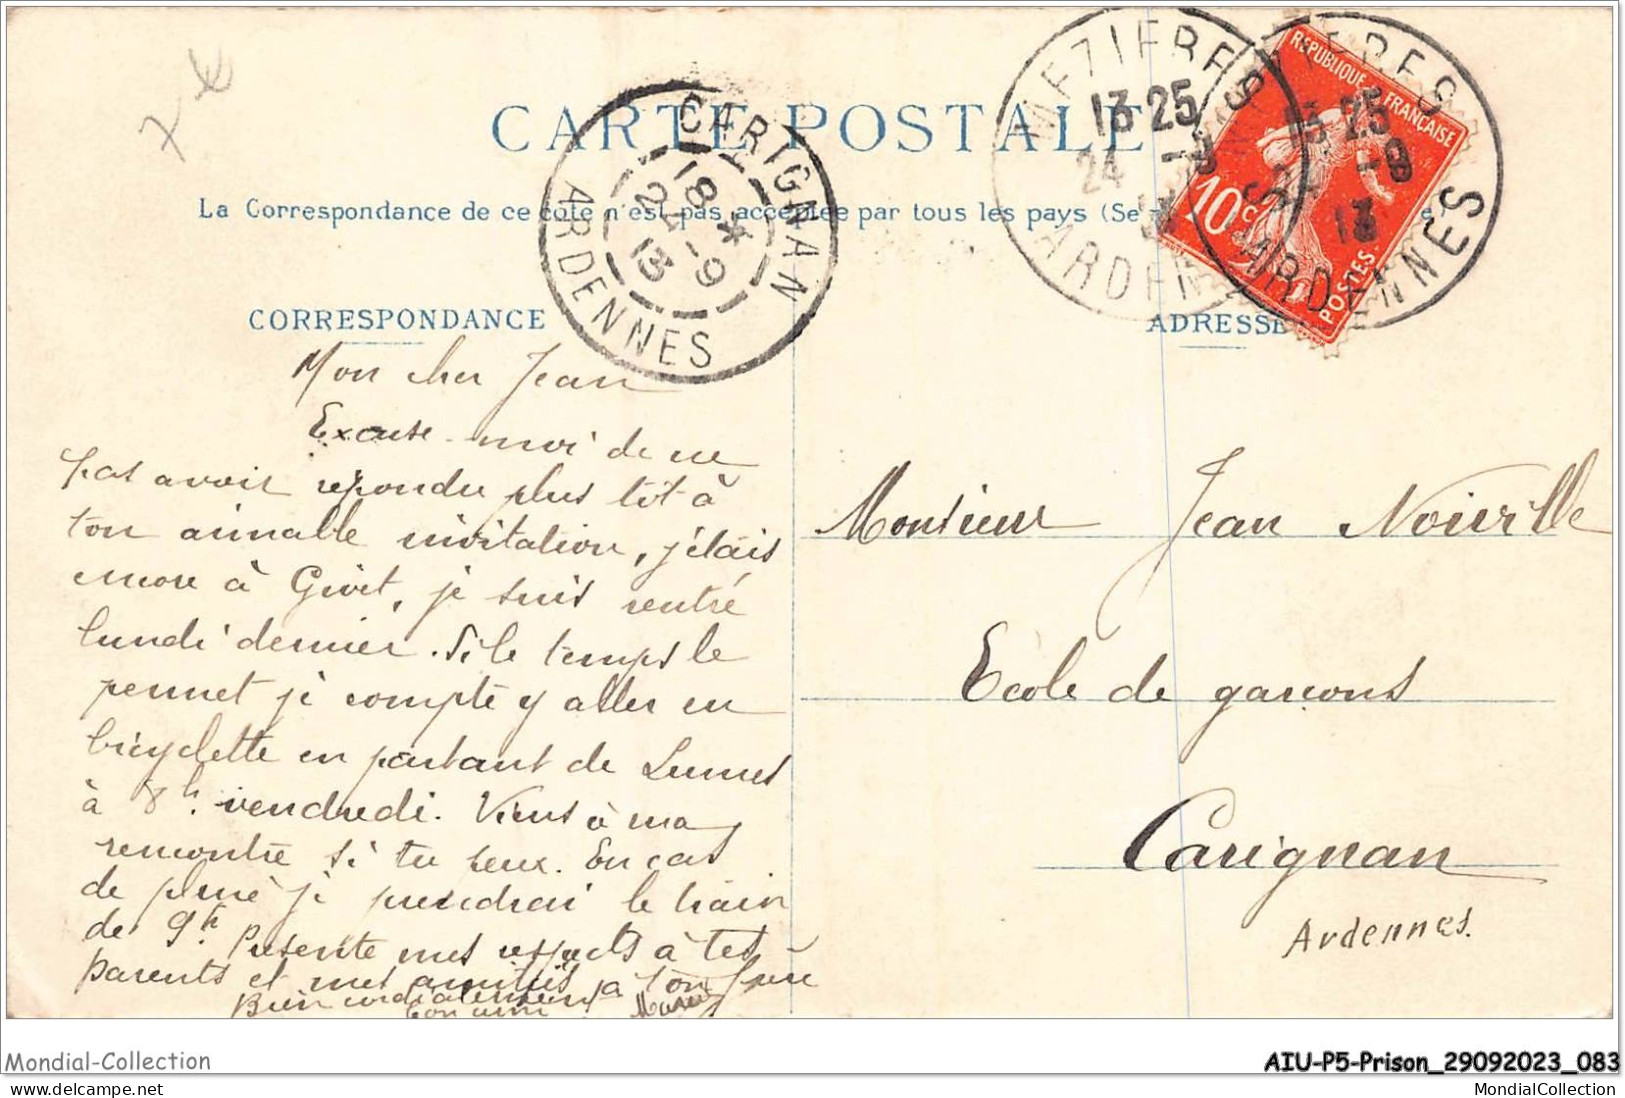 CARTE POSTALE
La Correspondance de ce côté n'est pas acceptée par tous les pays (Se
CORRESPONDANCE
ADRESSE
CARIGNAN
18 *
24-9
13
ARDENNES
MEZIERES
13 25
24 -9
13
ARDENNES
REPUBLIQUE FRANÇAISE
10c
POSTES
Mon cher Jean
Excuse-moi de ne
pas avoir répondu plus tôt à
ton aimable invitation, j'étais
encore à Givet, je suis rentré
lundi dernier. Si le temps le
permet je compte y aller en
bicyclette en partant de Lumes
à 8h. vendredi. Viens à ma
rencontre si tu veux. En cas
de pluie je prendrai le train
de 9h. Présente mes respects à tes
parents et mes amitiés à ton frère
Bien cordialement
ton ami
Monsieur Jean Noirville
Ecole de garçons
Carignan
Ardennes.
Mondial-Collection
AIU-P5-Prison_29092023_083
MondialCollection